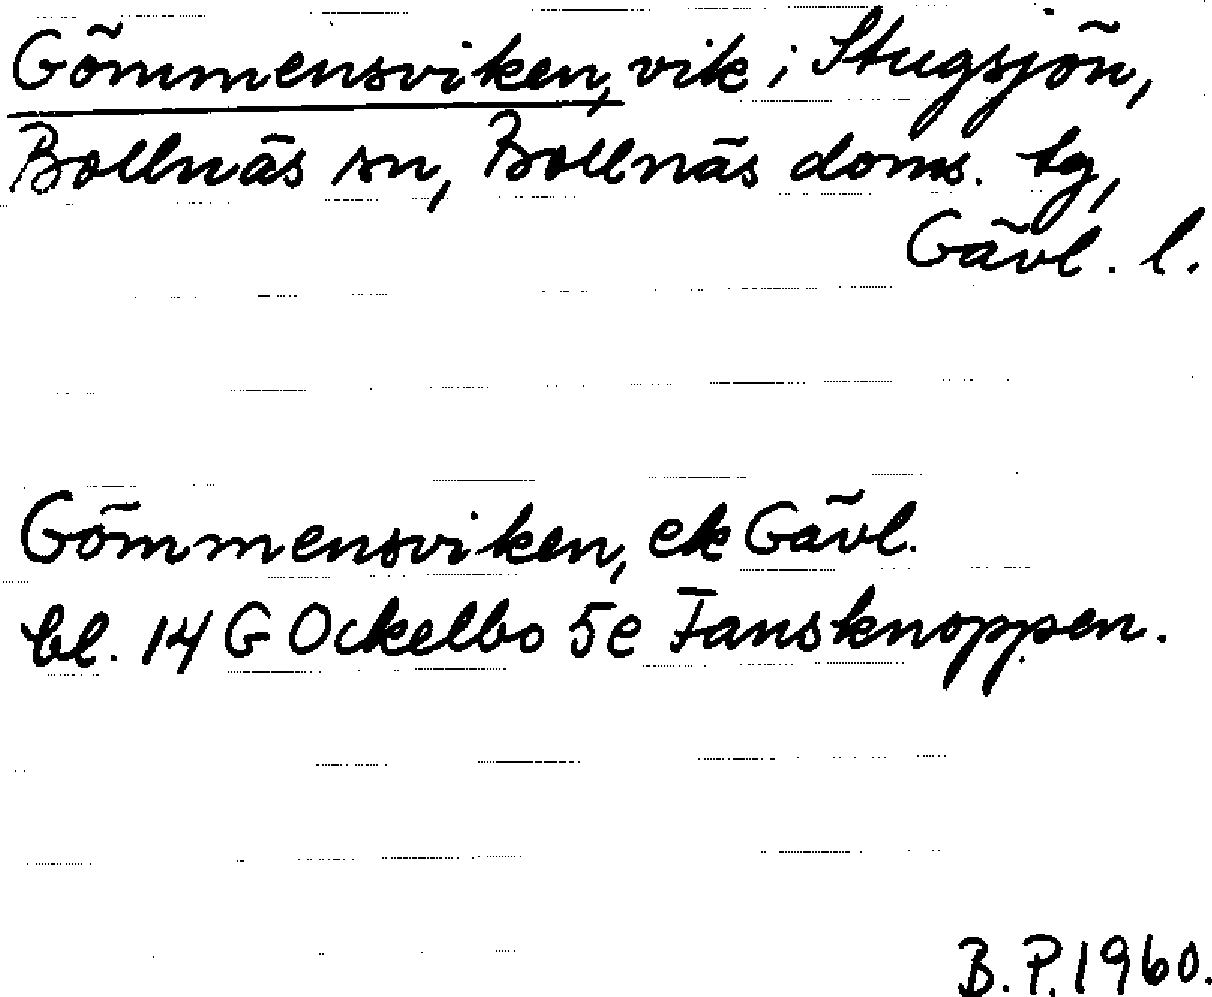 Gömmensviken, vik i Stugsjön,
Bollnäs sn, Bollnäs doms. tg,
Gävl. l.
Gömmensviken, ek Gävl.
bl. 14 G Ockelbo 5e Fansknoppen.
B.P. 1960.